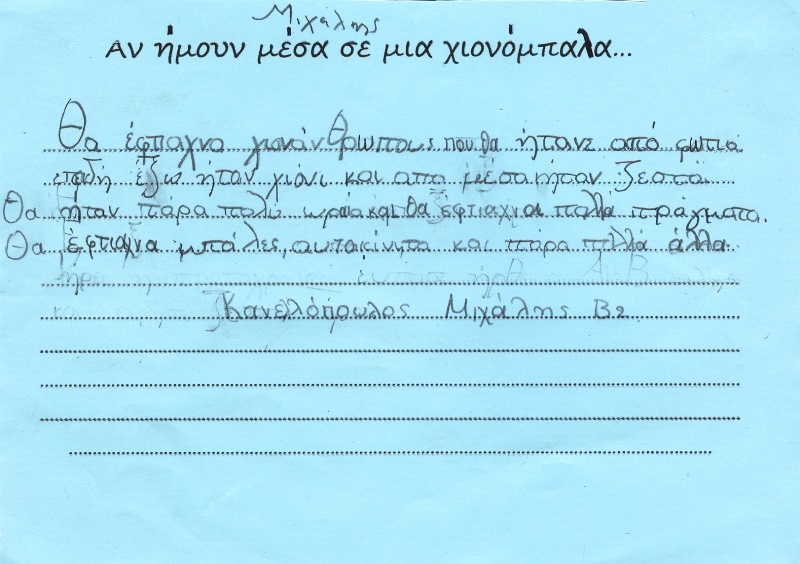 Μιχάλης
Αν ήμουν μέσα σε μια χιονόμπαλα...
Θα έφτιαχνα χιονάνθρωπους που θα ήτανε από φωτιά
επιδή έξω ήταν χιόνι και απο μέσα ήταν ζεστά.
Θα ήταν πάρα πολύ ωραία και θα έφτιαχνα πολλά πράγματα.
Θα έφτιαχνα μπάλες, αυτακίνητα και πάρα πολλά άλλα
Κανελλόπουλος Μιχάλης Β2